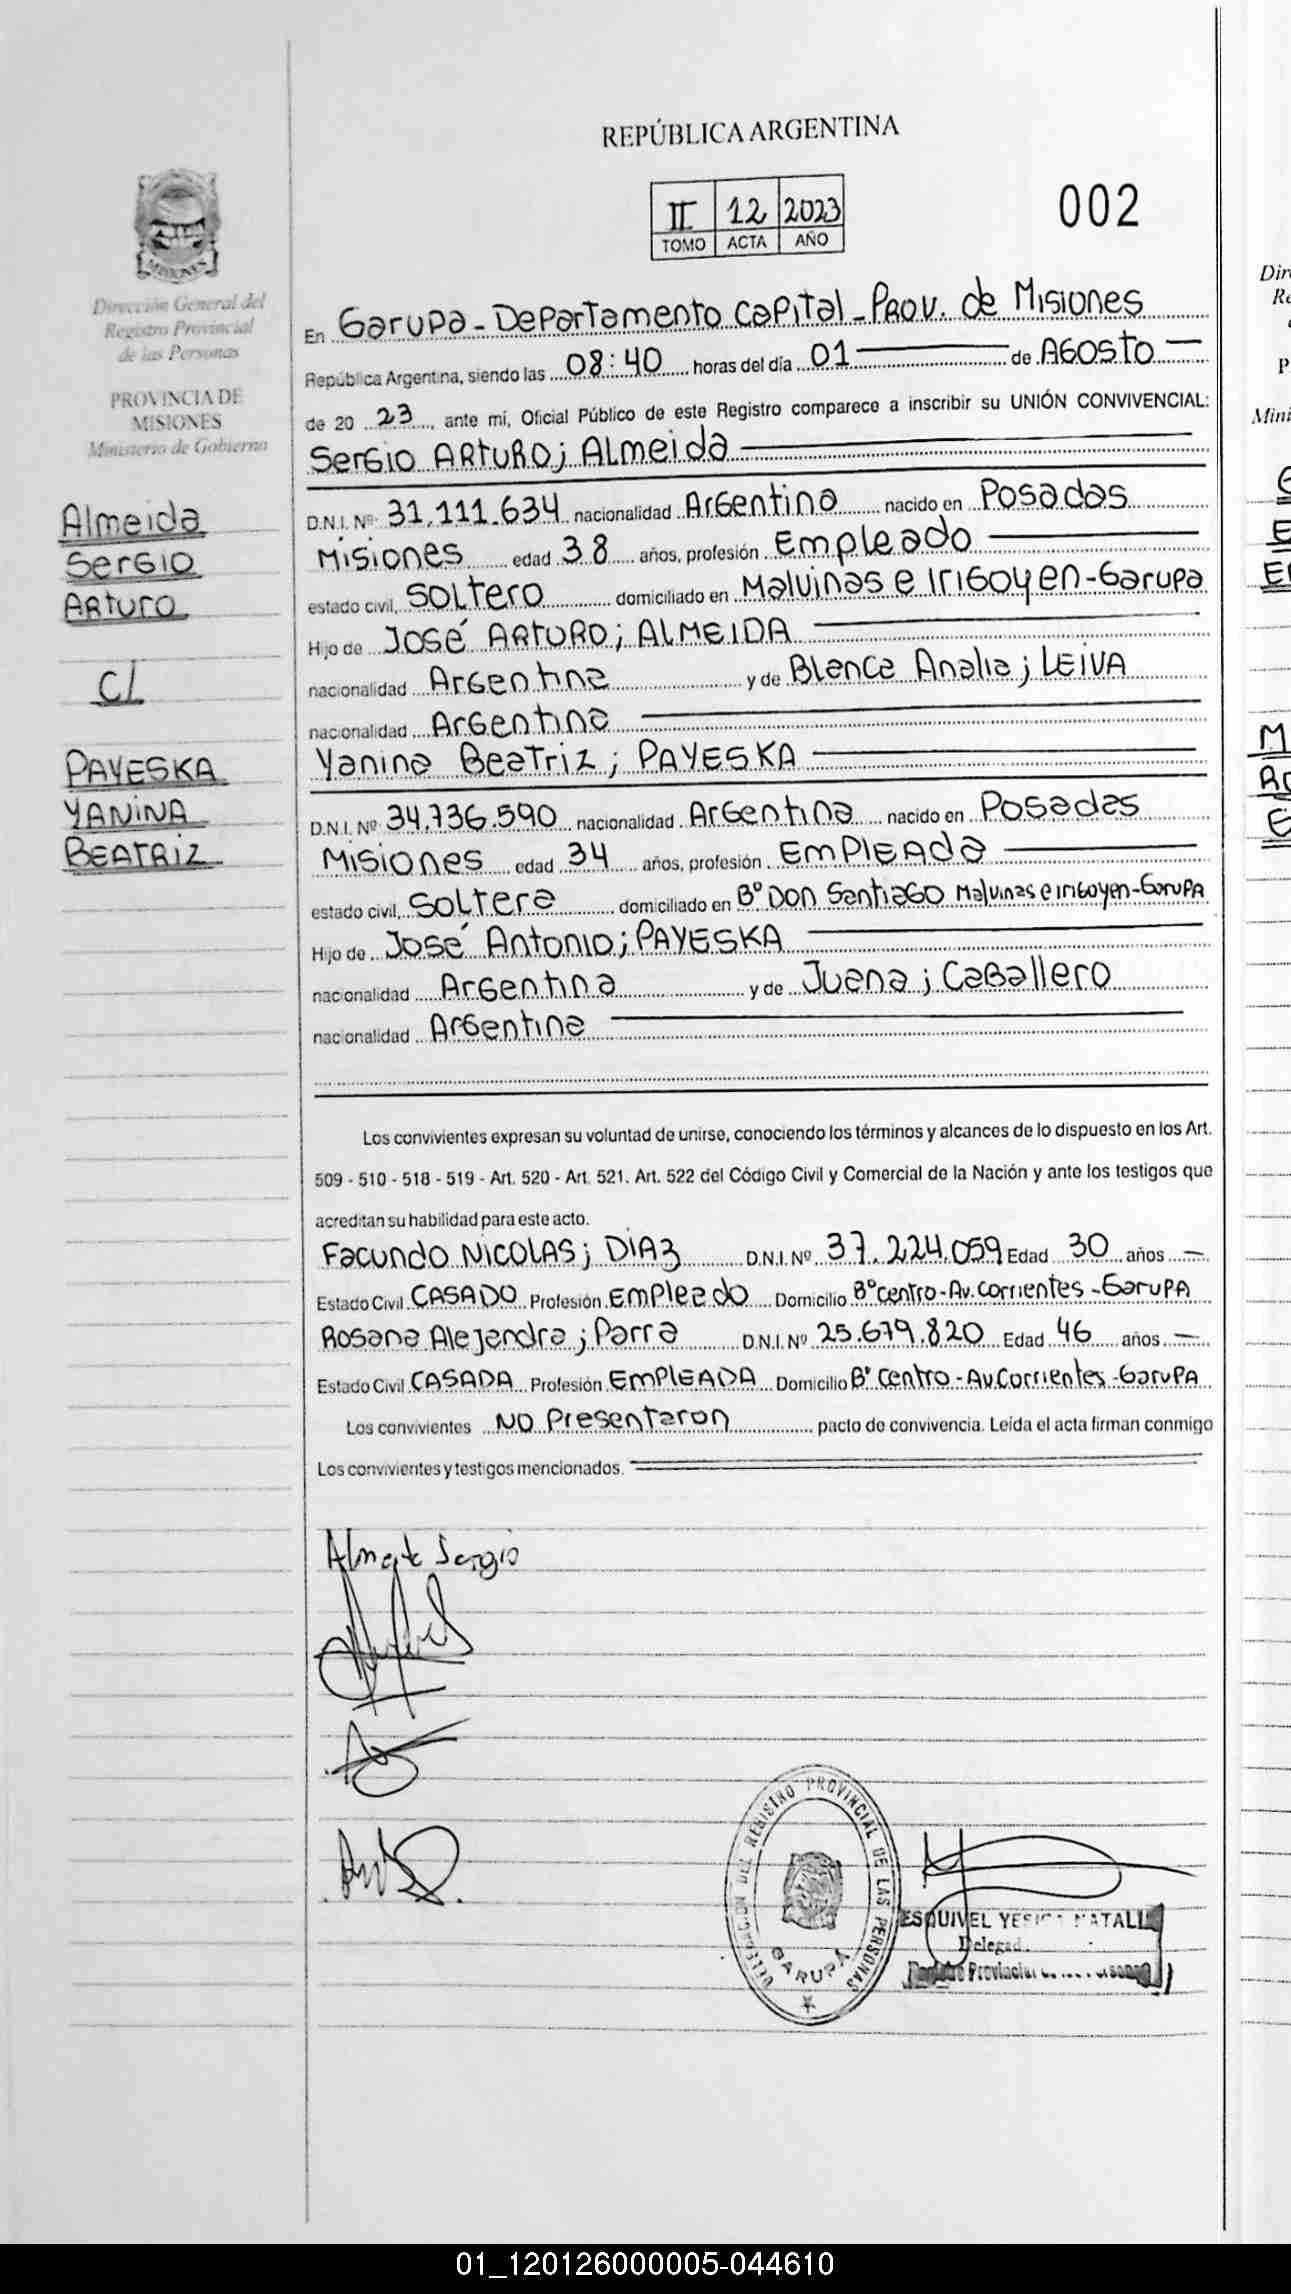 REPÚBLICA ARGENTINA
II 12 2023
TOMO ACTA AÑO
002
MISIONES
Dirección General del
Registro Provincial
de las Personas
PROVINCIA DE
MISIONES
Ministerio de Gobierno
Almeida
Sergio
Arturo
C/
PAYESKA
YANINA
BEATRIZ
En Garupa - Departamento Capital - Prov. de Misiones
República Argentina, siendo las 08:40 horas del día 01 de AGosto
de 20 23, ante mí, Oficial Público de este Registro comparece a inscribir su UNIÓN CONVIVENCIAL:
Sergio ARTURO; Almeida
D.N.I. Nº 31.111.634 nacionalidad Argentina nacido en Posadas
Misiones edad 38 años, profesión Empleado
estado civil, Soltero domiciliado en Malvinas e Irigoyen-Garupa
Hijo de José ARTURO; ALMEIDA
nacionalidad Argentina y de Blanca Analia; LEIVA
nacionalidad Argentina
Yanina Beatriz; PAYESKA
D.N.I. Nº 34.736.590 nacionalidad Argentina nacido en Posadas
Misiones edad 34 años, profesión EmPlEAda
estado civil, Soltera domiciliado en Bº Don Santiago Malvinas e irigoyen-GaruPA
Hijo de José Antonio; PAYESKA
nacionalidad Argentina y de Juana; Caballero
nacionalidad Argentina
Los convivientes expresan su voluntad de unirse, conociendo los términos y alcances de lo dispuesto en los Art.
509 - 510 - 518 - 519 - Art. 520 - Art. 521. Art. 522 del Código Civil y Comercial de la Nación y ante los testigos que
acreditan su habilidad para este acto.
Facundo NICOLAS; DIAZ D.N.I. Nº 37.224.059 Edad 30 años
Estado Civil CASADO Profesión Empleado Domicilio Bº centro - Av. Corrientes - GaruPA
Rosana Alejandra; Parra D.N.I. Nº 25.679.820 Edad 46 años
Estado Civil CASADA Profesión EMPlEADA Domicilio Bº Centro - Av Corrientes - GaruPA
Los convivientes NO Presentaron pacto de convivencia. Leída el acta firman conmigo
Los convivientes y testigos mencionados.
Almeida Sergio
DELEGACION DEL REGISTRO PROVINCIAL DE LAS PERSONAS
GARUPÁ
ESQUIVEL YESICA NATALI
Delegad
Registro Provincial de las Personas
01_120126000005-044610